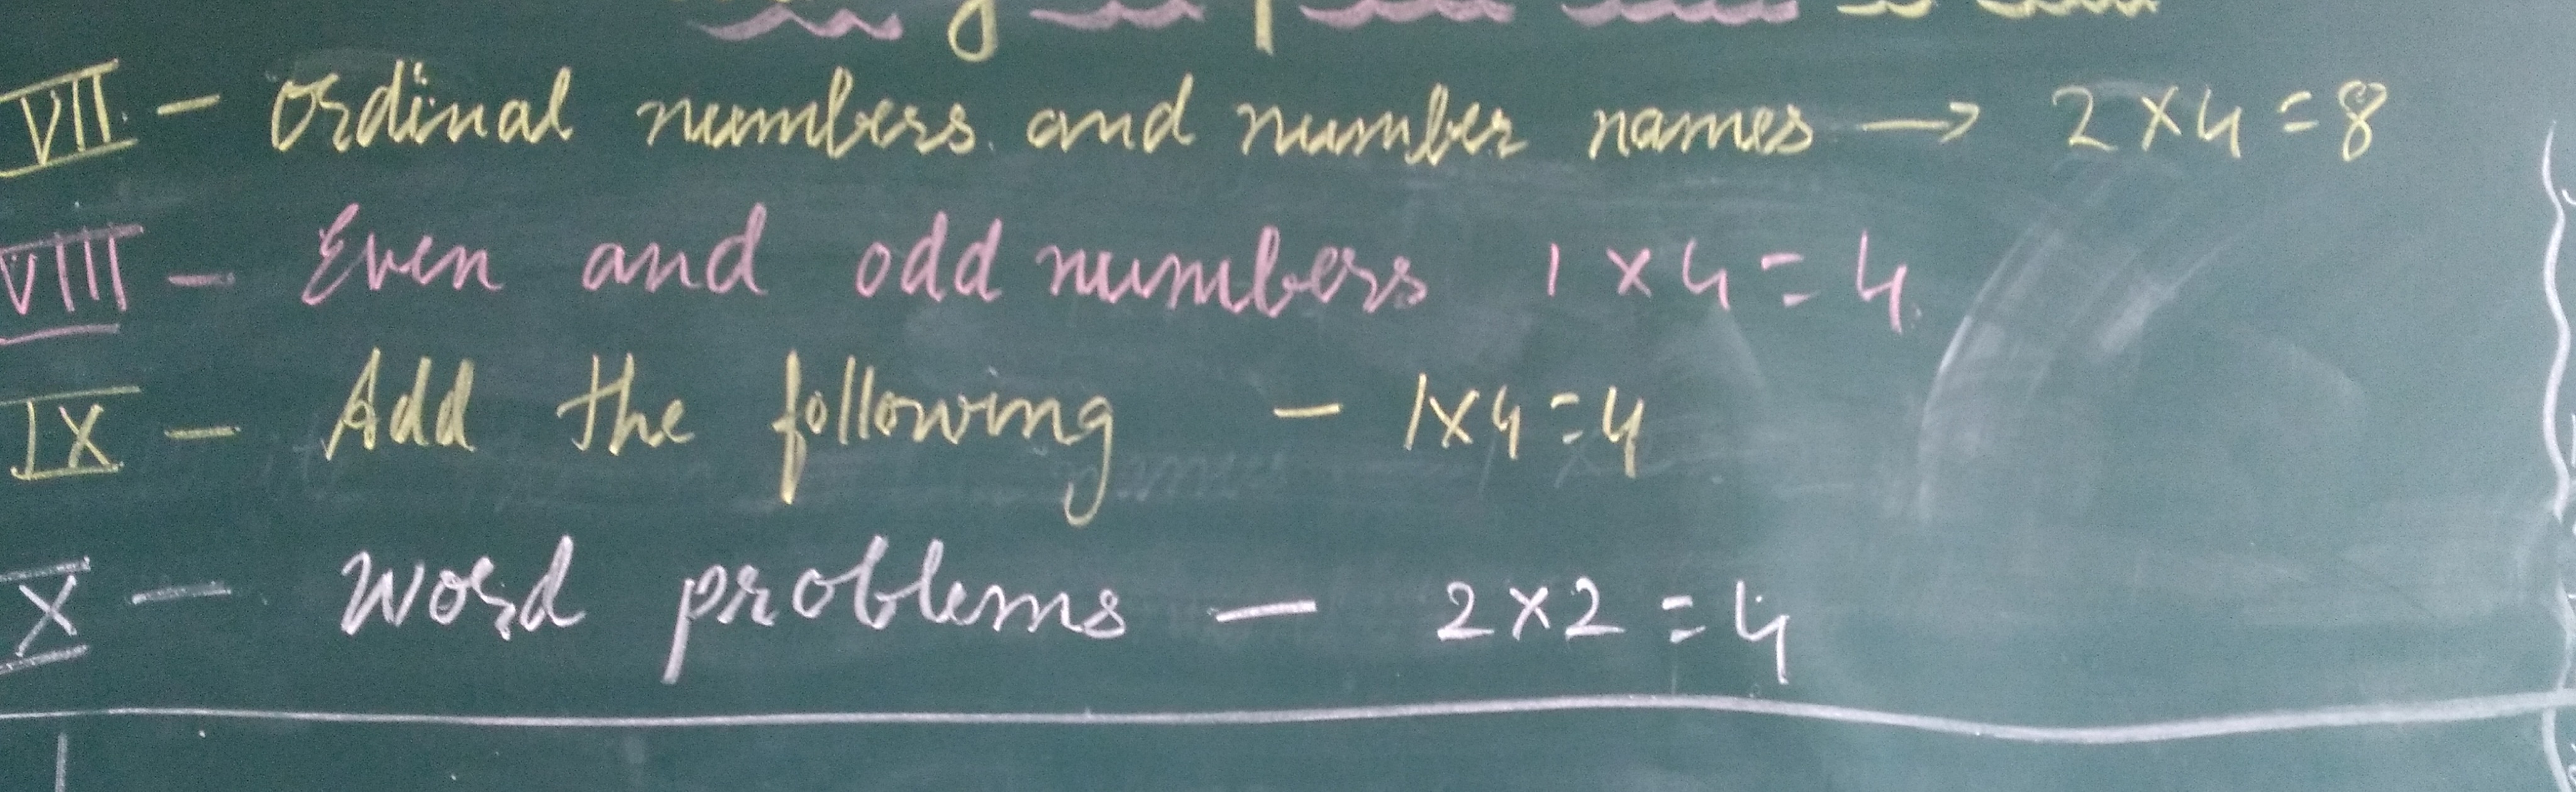 VII - Ordinal numbers and number names → 2 × 4 = 8
VIII - Even and odd numbers 1 × 4 = 4
IX - Add the following - 1 × 4 = 4
X - Word problems - 2 × 2 = 4